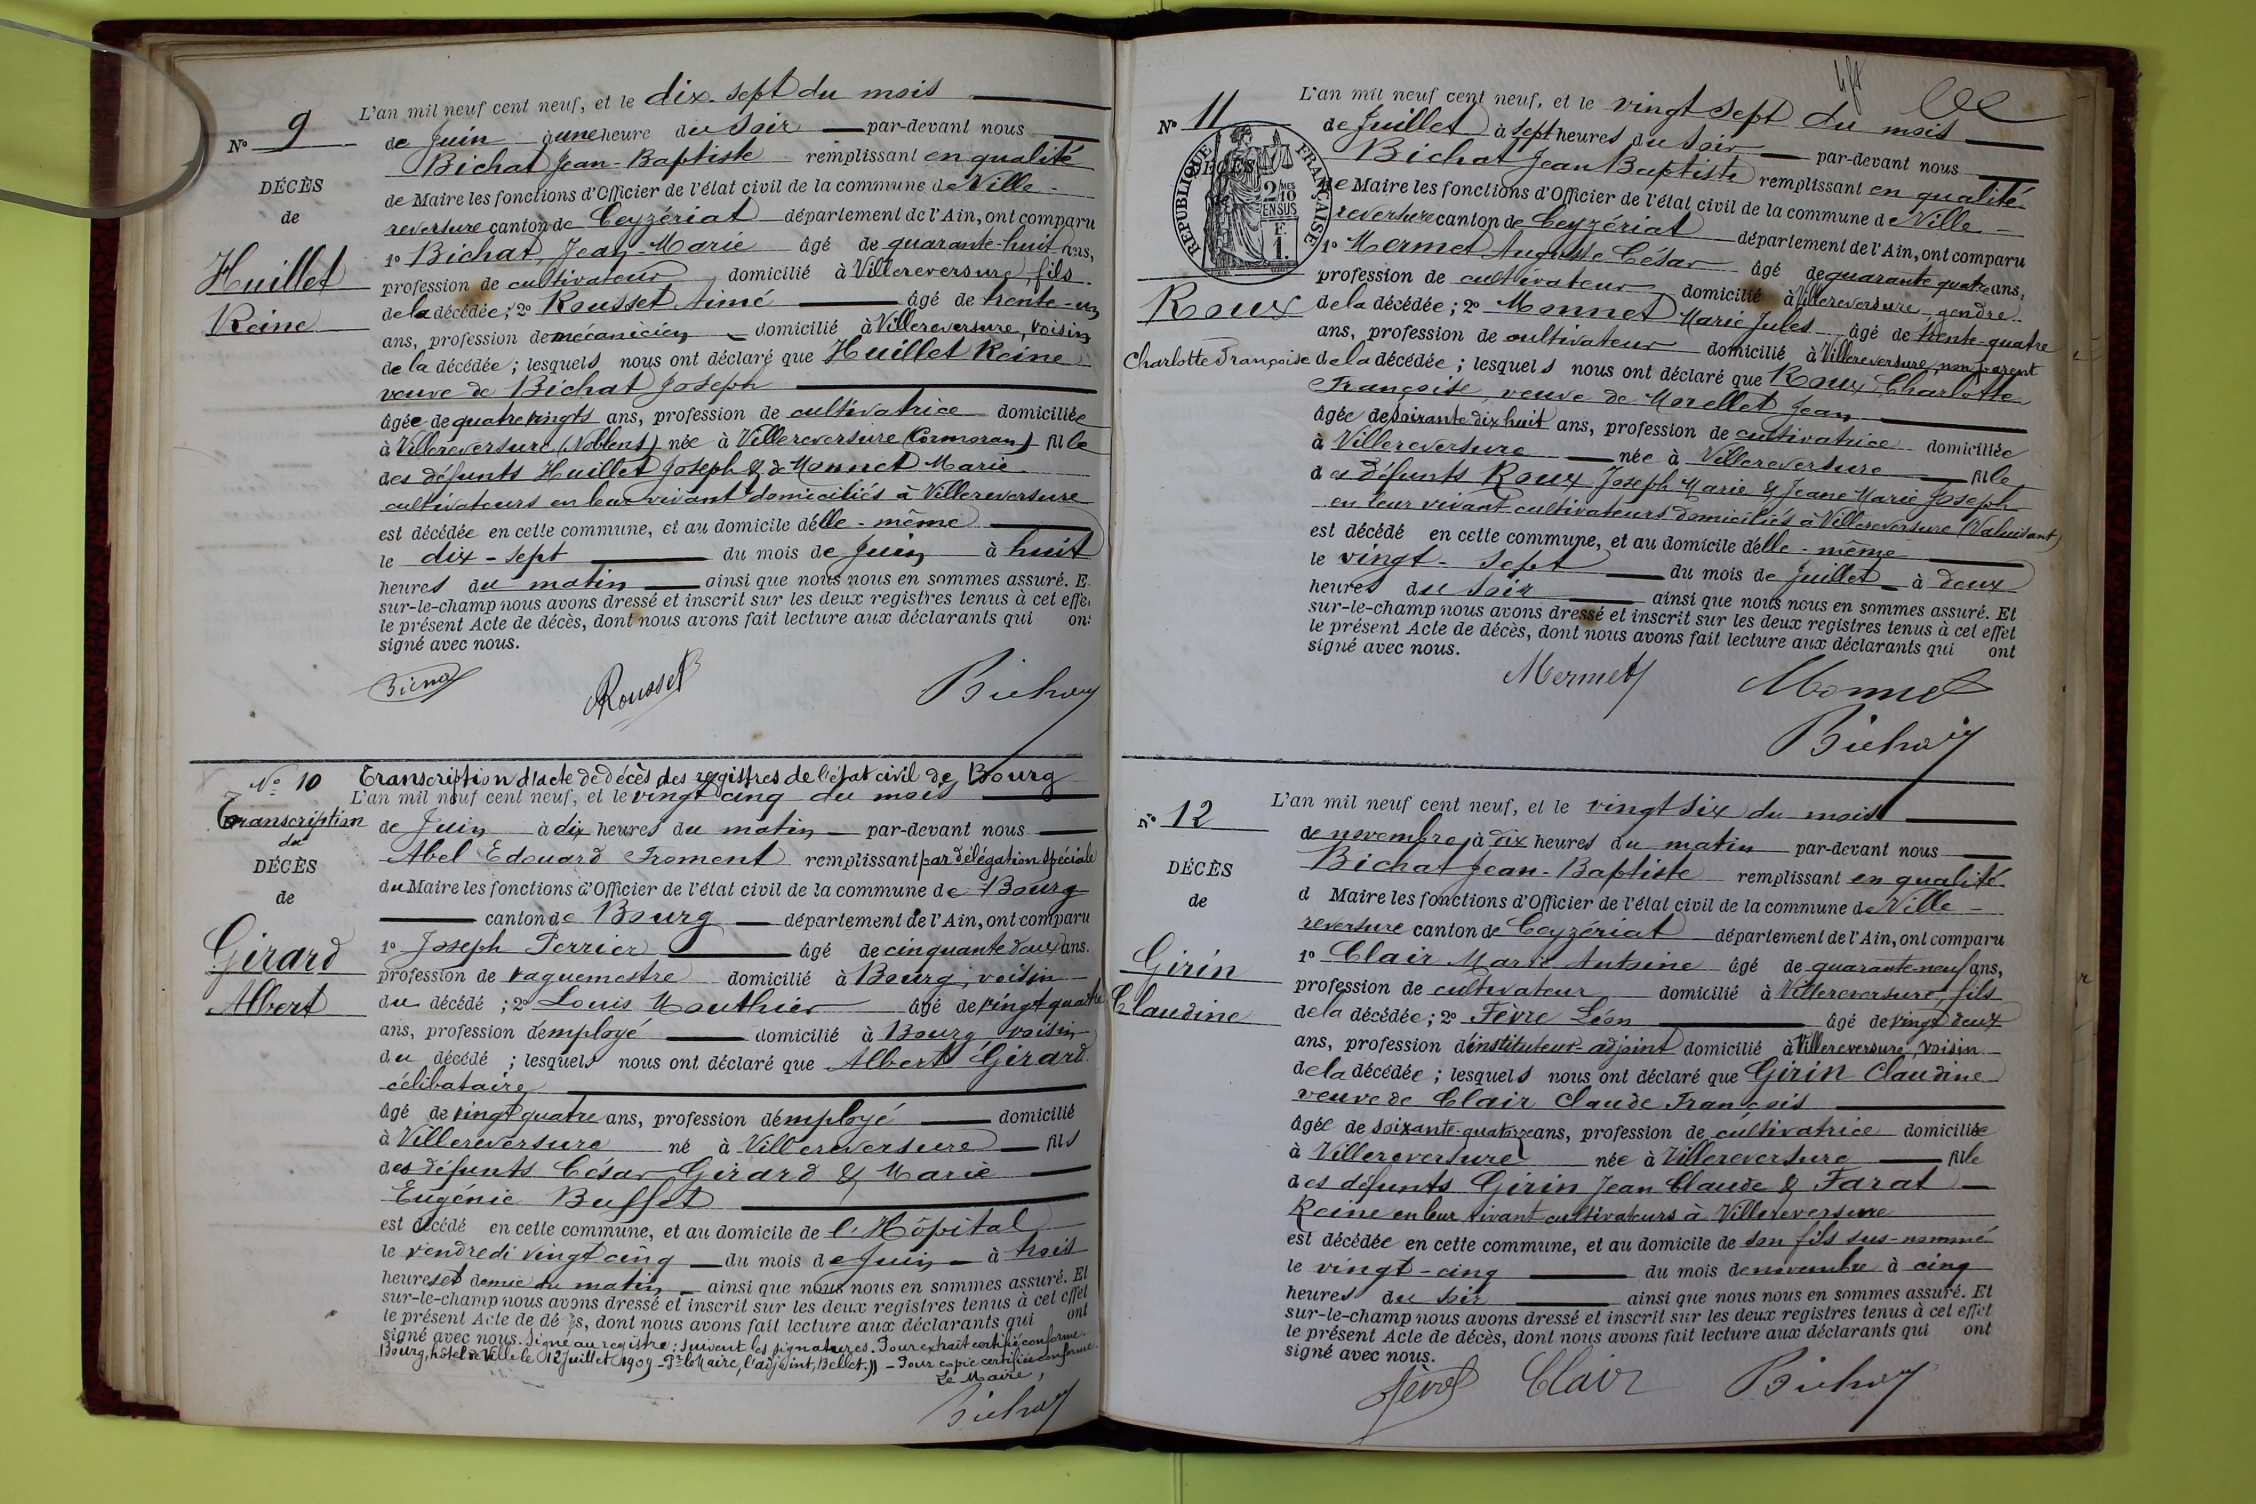 L'an mil neuf cent neuf, et le dix-sept du mois
N° 9
de Juin à une heure du soir par-devant nous
Bichat Jean-Baptiste remplissant en qualité
DÉCÈS
de Maire les fonctions d'Officier de l'état civil de la commune de Ville-
de
reversure canton de Ceyzériat département de l'Ain, ont comparu
1° Bichat, Jean-Marie âgé de quarante-huit ans,
Huillet
profession de cultivateur domicilié à Villereversure, fils
de la décédée; 2° Rousset Aimé âgé de trente-un
Reine
ans, profession de mécanicien domicilié à Villereversure, voisin
de la décédée; lesquels nous ont déclaré que Huillet Reine
veuve de Bichat Joseph
âgée de quatre vingts ans, profession de cultivatrice domiciliée
à Villereversure (Noblens) née à Villereversure (Cormoran) fille
des défunts Huillet Joseph & de Monnet Marie
cultivateurs en leur vivant domiciliés à Villereversure
est décédée en cette commune, et au domicile d'elle-même
le dix-sept du mois de Juin à huit
heures du matin ainsi que nous nous en sommes assuré. E
sur-le-champ nous avons dressé et inscrit sur les deux registres tenus à cet effe
le présent Acte de décès, dont nous avons fait lecture aux déclarants qui on
signé avec nous.
Rousset Bichat
N° 10 Transcription d'acte de décès des registres de l'état civil de Bourg
L'an mil neuf cent neuf, et le vingt cinq du mois
Transcription
de Juin à dix heures du matin par-devant nous
du
Abel Edouard Froment remplissant par délégation spéciale
DÉCÈS
du Maire les fonctions d'Officier de l'état civil de la commune de Bourg
de
canton de Bourg département de l'Ain, ont comparu
1° Joseph Perrier âgé de cinquante deux ans.
Girard
profession de vaguemestre domicilié à Bourg, voisin
Albert
du décédé; 2° Louis Mouthier âgé de vingt quatre
ans, profession d'employé domicilié à Bourg, voisin
du décédé; lesquels nous ont déclaré que Albert Girard
célibataire
âgé de vingt quatre ans, profession d'employé domicilié
à Villereversure né à Villereversure fils
des défunts César Girard & Marie
Eugénie Buffet
est décédé en cette commune, et au domicile de l'Hôpital
le vendredi vingt cinq du mois de Juin à trois
heures et demie du matin ainsi que nous nous en sommes assuré. Et
sur-le-champ nous avons dressé et inscrit sur les deux registres tenus à cet effet
le présent Acte de décès, dont nous avons fait lecture aux déclarants qui ont
signé avec nous. Signé au registre: suivent les signatures. Pour extrait certifié conforme.
Bourg, hôtel de Ville le 12 Juillet 1909 - Pr le Maire, l'adjoint, Bellet. )) - Pour copie certifiée conforme.
Le Maire,
Bichat
L'an mil neuf cent neuf, et le vingt sept du mois
N° 11
de Juillet à sept heures du soir par-devant nous
Bichat Jean Baptiste remplissant en qualité
DÉCÈS
RÉPUBLIQUE FRANÇAISE
2/10 MES
EN SUS
F.
1.
de Maire les fonctions d'Officier de l'état civil de la commune de Ville-
reversure canton de Ceyzériat département de l'Ain, ont comparu
1° Mermet Auguste César âgé de quarante quatre ans,
profession de cultivateur domicilié à Villereversure, gendre
Roux
de la décédée; 2° Monnet Marie Jules âgé de trente-quatre
ans, profession de cultivateur domicilié à Villereversure, non parent
Charlotte Françoise
de la décédée; lesquels nous ont déclaré que Roux, Charlotte
Françoise, veuve de Morellet Jean
âgée de soixante dix huit ans, profession de cultivatrice domiciliée
à Villereversure née à Villereversure fille
des défunts Roux Joseph Marie & Jeane Marie Joseph
en leur vivant cultivateurs domiciliés à Villereversure (Valuisant)
est décédé en cette commune, et au domicile d'elle-même
le vingt-sept du mois de Juillet à deux
heures du soir ainsi que nous nous en sommes assuré. Et
sur-le-champ nous avons dressé et inscrit sur les deux registres tenus à cet effet
le présent Acte de décès, dont nous avons fait lecture aux déclarants qui ont
signé avec nous.
Mermet Monnet
Bichat
L'an mil neuf cent neuf, et le vingt six du mois
N° 12
de novembre, à dix heures du matin par-devant nous
Bichat Jean-Baptiste remplissant en qualité
DÉCÈS
d Maire les fonctions d'Officier de l'état civil de la commune de Ville-
de
reversure canton de Ceyzériat département de l'Ain, ont comparu
1° Clair Marie Antoine âgé de quarante neuf ans,
Girin
profession de cultivateur domicilié à Villereversure, fils
Claudine
de la décédée; 2° Fèvre Léon âgé de vingt deux
ans, profession d'instituteur-adjoint domicilié à Villereversure, voisin
de la décédée; lesquels nous ont déclaré que Girin Claudine
veuve de Clair Claude François
âgée de soixante-quatorze ans, profession de cultivatrice domiciliée
à Villereversure née à Villereversure fille
des défunts Girin Jean Claude & Farat
Reine en leur vivant cultivateurs à Villereversure
est décédée en cette commune, et au domicile de son fils sus-nommé
le vingt-cinq du mois de novembre à cinq
heures du soir ainsi que nous nous en sommes assuré. Et
sur-le-champ nous avons dressé et inscrit sur les deux registres tenus à cet effet
le présent Acte de décès, dont nous avons fait lecture aux déclarants qui ont
signé avec nous.
Fèvre Clair Bichat